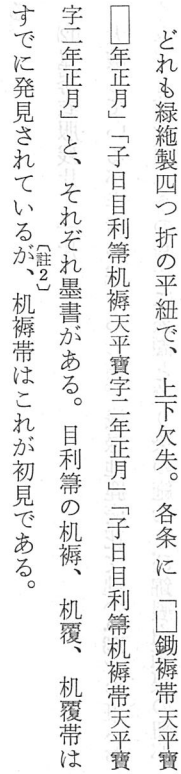 どれも緑絁製四つ折の平紐で、上下欠失。各条に「□鋤褥帯天平寶
□年正月」「子日目利箒机褥天平寶字二年正月」「子日目利箒机褥帯天平寶
字二年正月」と、それぞれ墨書がある。目利箒の机褥、机覆、机覆帯は
すでに発見されているが、〔註2〕机褥帯はこれが初見である。